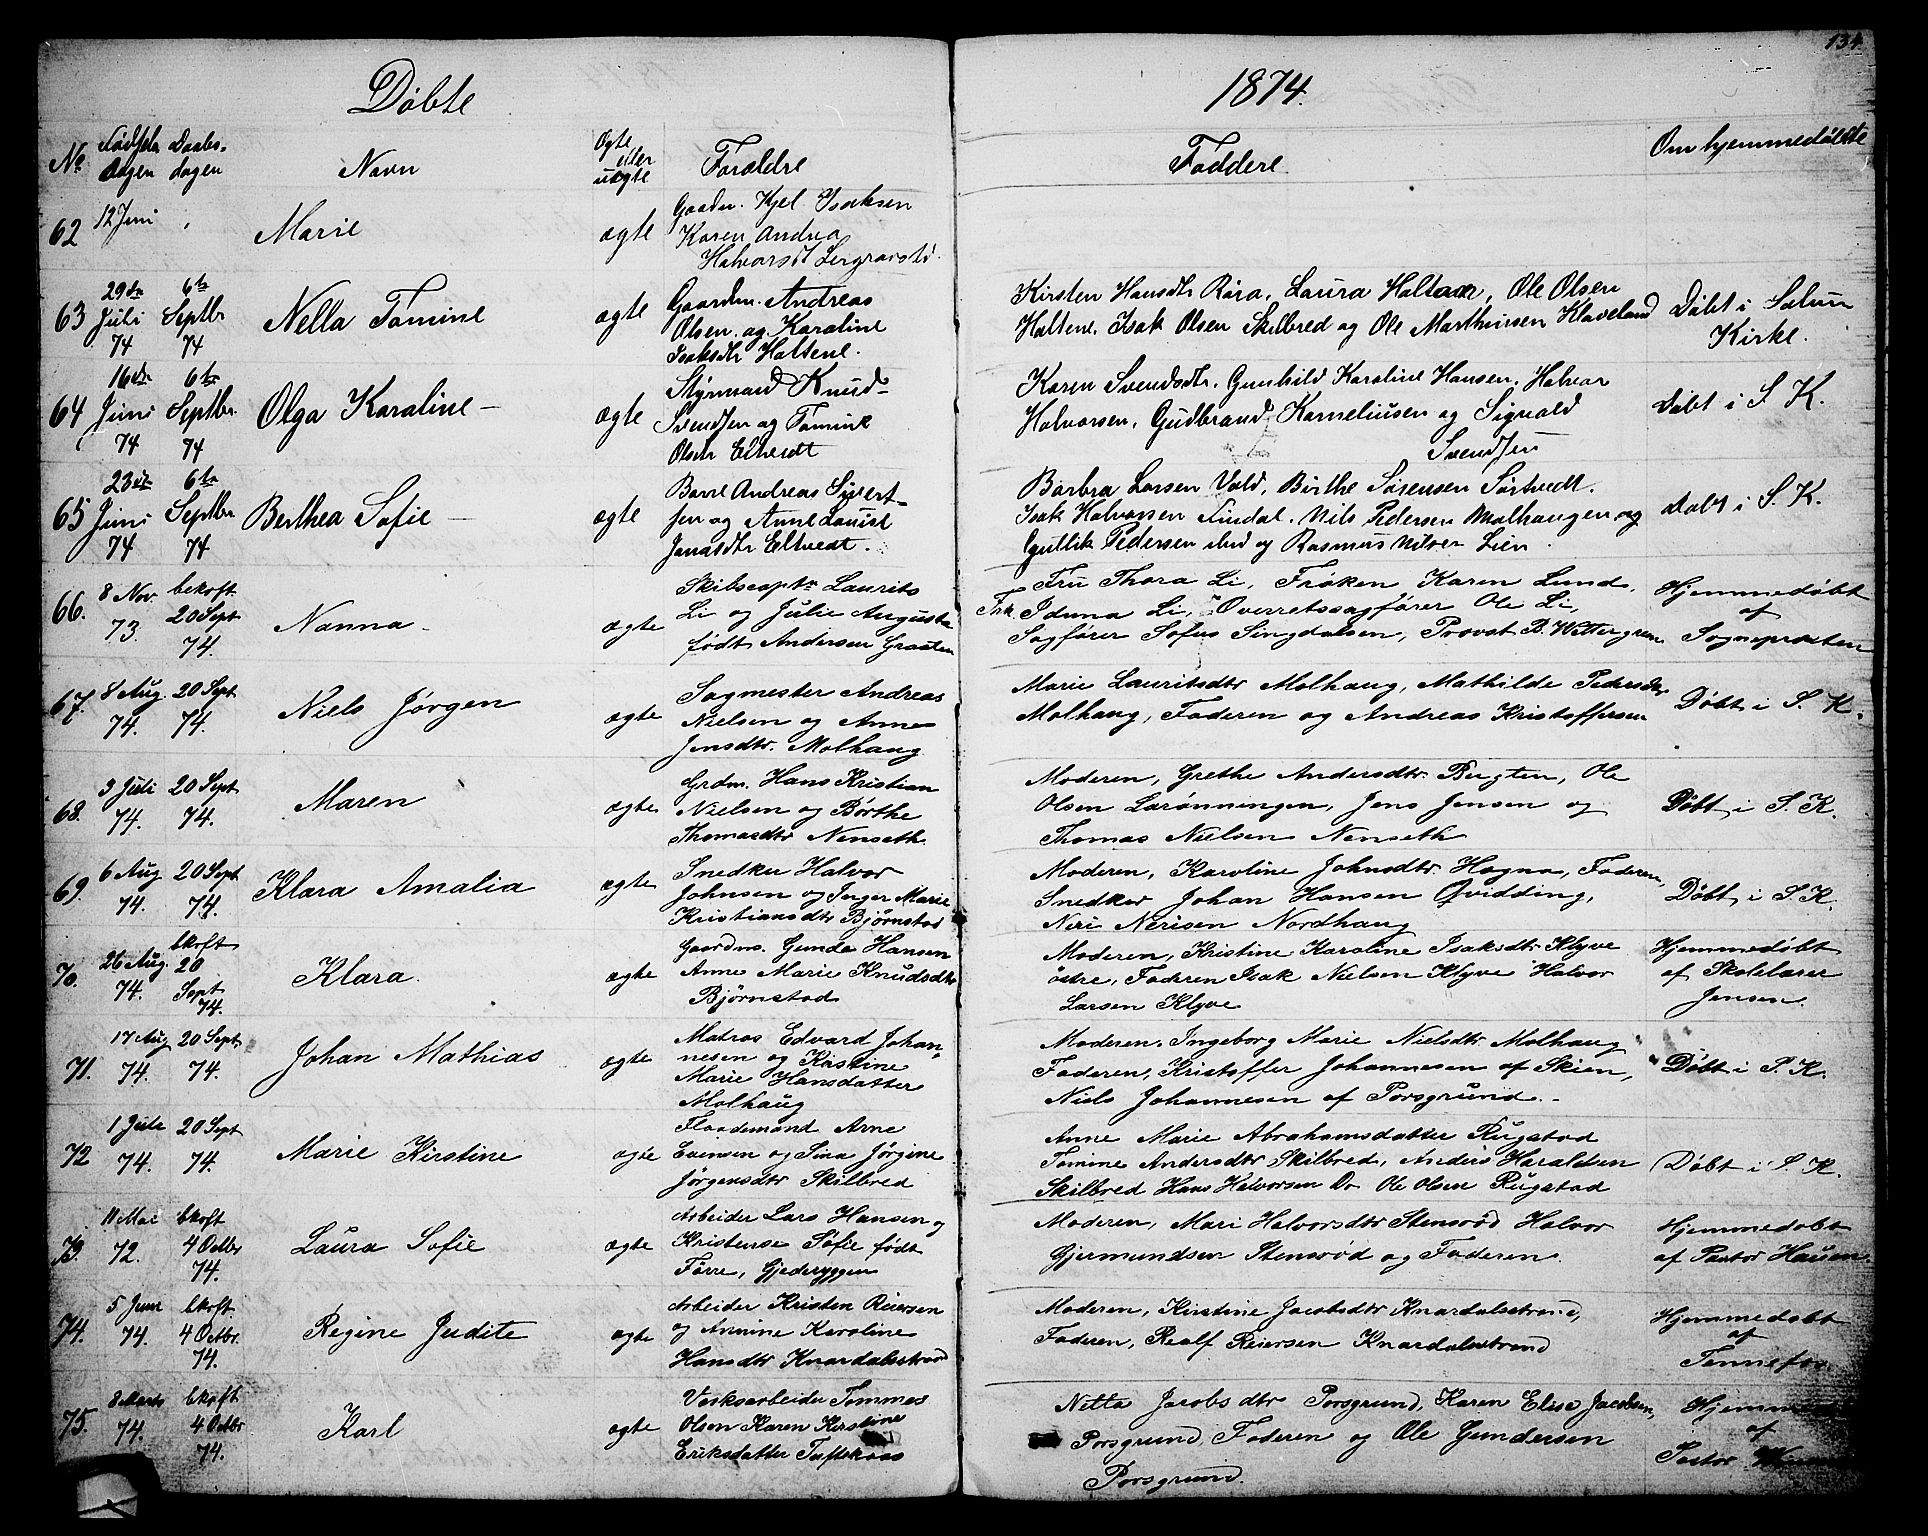 134
Døbte
1874.
No. Fødsels dagen Daabs- dagen Navn Ægte eller uægte Forældre Faddere. Om hjemmedøbte
62 12 Juni Marie ægte Gaardm. Kjel Isaksen
Karen Andrea
Halvorsdt Lergravsld.
63 29de Juli 74 6te Septbr 74 Nella Tomine ægte Gaardm. Andreas
Olsen og Karoline
Isaksdtr Holtene.
Kirsten Hansdtr Rära, Laura Holtan, Ole Olsen
Holtene, Isak Olsen Skilbred og Ole Marthinsen Klaveland
Døbt i Solum
Kirke.
64 16de Juni 74 6te Septbr. 74 Olga Karaline – ægte Styrmand Knud
Svendsen og Tomine
Olsdtr Eltvedt
Karen Svendsdtr, Gunhild Karoline Hansen, Halvor
Halvorsen, Gudbrand Korneliusen og Sigvald
Svendsen
døbt i S K.
65 23de Juni 74 6te Septbr 74 Berthea Sofie – ægte Andreas Sivert-
sen og Anne Louise
Jonasdtr Eltvedt.
Barbra Larsen Vold, Birthe Sörensen Sörtvedt.
Isak Halvorsen Findal, Nils Pedersen Molhaugen og
Gullik Pedersen ibid og Rasmus Lien.
døbt i S. K.
66. 8 Nov. 73. bekræft 20 Sept 74. Nanna – ægte Skibscaptn Laurits
Li og Julie Augusta
født Andersen Graaten
Fru Thora Li, Frøken Karen Lund,
Frk. Iduna Li, Overretssagfører Ole Li,
Sagfører Sofus Singdalsen, Provst B. Wettergreen
Hjemmedøbt
af
Sognepresten
67. 8 Aug. 74. 20 Sept 74. Niels Jørgen ægte Sagmester Andreas
Nielsen og Anne
Jensdtr. Molhaug
Marie Lauritsdtr Molhaug, Mathilde Pedersdtr
Molhaug, Faderen og Andreas Kristoffersen
Døbt i S. K.
68. 3 Juli 74. 20 Sept 74. Maren ægte Grdm. Hans Kristian
Nielsen og Børthe
Thomasdtr Nenseth
Moderen, Grethe Andersdtr Bugten, Ole
Olsen Larønningen, Jens Jensen og
Thomas Nielsen Nenseth
Døbt i S. K.
69. 6 Aug 74. 20 Sept 74. Klara Amalia ægte Snedker Halvor
Johnsen og Inger Marie
Kristiansdtr Bjørnstad
Moderen, Karoline Johnsdtr Hogna, Faderen,
Snedker Johan Hansen Qvidding,
Neri Nerisen Nordhaug
Døbt i S. K.
70. 26 Aug. 74. bkræft 20 Sept 74. Klara. ægte Gaardm. Gunde Hansen
Anne Marie Knudsdtr
Bjørnstad
Moderen, Kristine Karoline Isaksdtr Klyve
östre, Faderen Isak Nielsen Klyve Halvor
Larsen Klyve
Hjemmedøbt
af Skolelærer
Jensen.
71. 17 Aug 74. 20 Sept 74. Johan Mathias ægte Matros Edvard Johan-
nesen og Kristine
Marie Hansdatter
Molhaug
Moderen. Ingeborg Marie Nielsdtr Molhaug
Faderen, Kristoffer Johannesen af Skien,
Niels Johannesen af Porsgrund. –
Døbt i S. K.
72 1 Juli 74. 20 Sept 74. Marie Kirstine ægte Flaademand Arne
Evensen og Sina Jørgine
Jørgensdtr Skilbred
Anne Marie Abrahamsdatter Rugstad
Tomine Andersdtr Skilbred, Anders Haraldsen
Skilbred Hans Halvorsen Do Ole Olsen Rugstad
Døbt i S. K.
73. 11 Mai 72. bkræft 4 Octbr 74. Laura Sofie ægte Arbeider Lars Hansen og
Kristense Sofie født
Førre, Gjederyggen
Moderen, Mari Halvorsdtr Stensrød Halvor
Gjermundsen Stensrød og Faderen.
Hjemmedøbt
af Pastor Hansen.
74. 5 Juni 74. bkræft. 4 Octbr. 74. Regine Judite ægte Arbeider Kristen Reiersen
og Annine Karoline
Hansdtr Knardalsstrand
Moderen, Kirstine Jacobsdtr Knardalsstrand,
Faderen, Realf Reiersen Knardalsstrand
Hjemmedøbt
af
75. 8 Marts 74. bkræft 4 Octbr 74. Karl ægte Verksarbeider Tommas
Olsen Karen Kirstine
Eriksdatter Tuftekaas
Netta Jacobsdtr Porsgrund, Karen Elise Jacobsen,
Porsgrund, Faderen og Ole Gundersen
Porsgrund.
af
Pastor